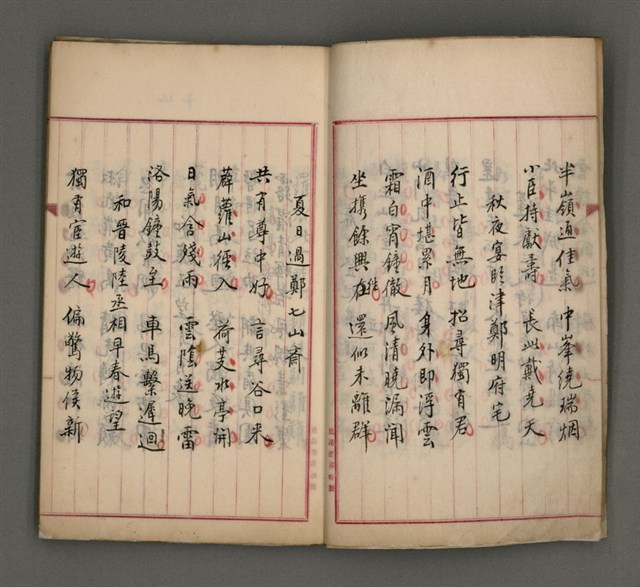 半嶺通佳氣 中峯繞瑞烟
小臣持獻壽 長此戴堯天
秋夜宴臨津鄭明府宅
行止皆無地 招尋獨有君
酒中堪累月 身外即浮雲
霜白宵鐘徹 風清曉漏聞
坐攜餘興在往 還似未離群
夏日過鄭七山斎
共有尊中好 言尋谷口来
薜蘿山徑入 荷芰水亭開
日氣含殘雨 雲陰送晚雷
洛陽鐘鼓至 車馬繫遲迴
和晋陵陸丞相早春遊望
獨有宦遊人 偏驚物候新